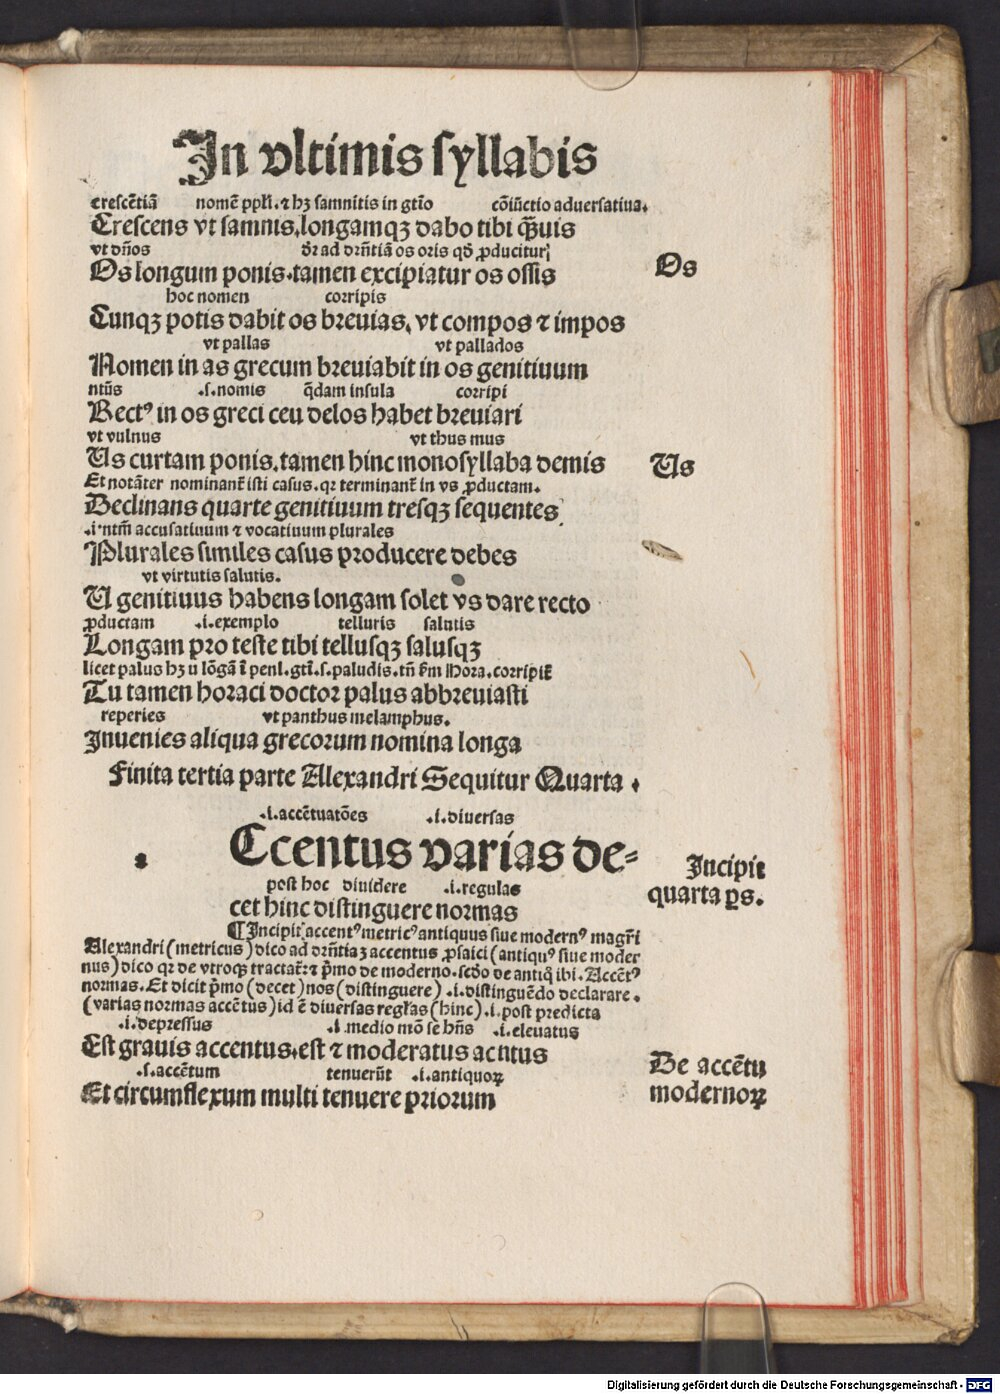 In vltimis syllabis
crescẽtiã nomẽ ppłi. ⁊ hꝫ samnitis in gtĩo cõiũctio aduersatiua.
Crescens vt samnis, longamqꝫ dabo tibi q̃uis
vt dños ad drñtiã os oris qđ ꝓducitur
Os longum ponis. tamen excipiatur os ossis
Os
hoc nomen corripis
Cunqꝫ potis dabit os breuias, vt compos ⁊ impos
vt pallas vt pallados
Nomen in as grecum breuiabit in os genitiuum
ntũs .s. nomis q̃dam insula corripi
Rectꝰ in os greci ceu delos habet breuiari
vt vulnus vt thus mus
Us curtam ponis. tamen hinc monosyllaba demis
Us
Et notãter nominanť isti casus. qꝛ terminanť in vs ꝓductam.
Declinans quarte genitiuum tresqꝫ sequentes
.i. ntm̃ accusatiuum ⁊ vocatiuum plurales
Plurales similes casus producere debes
vt virtutis salutis.
U genitiuus habens longam solet vs dare recto
ꝓductam .i. exemplo telluris salutis
Longam pro teste tibi tellusqꝫ salusqꝫ
licet palus hꝫ u lõgã ĩ penl. gtĩ. s. paludis. tñ ẜm Hora. corripiť
Tu tamen horaci doctor palus abbreuiasti
reperies vt panthus melamphus.
Inuenies aliqua grecorum nomina longa
Finita tertia parte Alexandri Sequitur Quarta.
.i. accẽtuatões .i. diuersas
Ccentus varias de⸗
Incipit
quarta ꝑs.
post hoc diuidere .i. regulas
cet hinc distinguere normas
¶ Incipit accentꝰ metricꝰ antiquus siue modernꝰ magr̃i
Alexandri (metricus) dico ad drñtiaꝫ accentus ꝓsaici (antiquꝰ siue moder
nus) dico qꝛ de vtroqꝫ tractať: ⁊ p̃mo de moderno. scđo de antiq̃ ibi. Accẽtꝰ
normas. Et dicit p̃mo (decet) nos (distinguere) .i. distinguẽdo declarare.
(varias normas accẽtus) id ẽ diuersas regłas (hinc) .i. post predicta
.i. depressus .i. medio mõ se hñs .i. eleuatus
Est grauis accentus. est ⁊ moderatus acutus
De accẽtu
modernoꝝ
.s. accẽtum tenuerũt .i. antiquoꝝ
Et circumflexum multi tenuere priorum
Digitalisierung gefördert durch die Deutsche Forschungsgemeinschaft - DFG